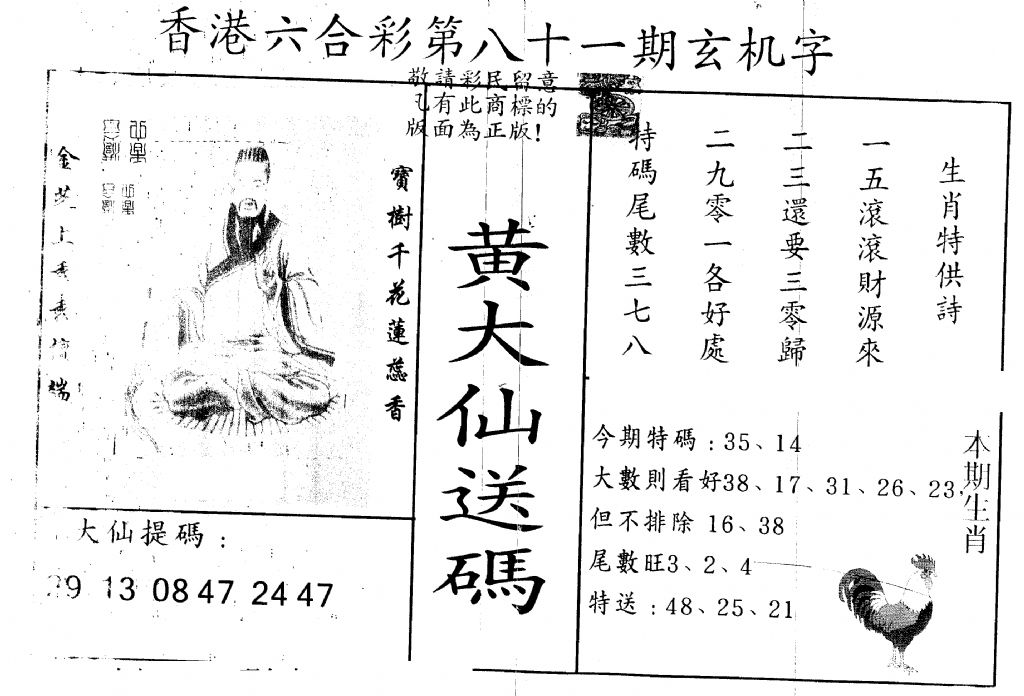 香港六合彩第八十一期玄机字
敬請彩民留意
凡有此商標的
版面為正版!
寶樹千花蓮蕊香
黃大仙送碼
生肖特供詩
一五滾滾財源來
二三還要三零歸
二九零一各好處
特碼尾數三七八
大仙提碼:
9 13 08 47 24 47
今期特碼:35、14
大數則看好38、17、31、26、23,
但不排除 16、38
尾數旺3、2、4
特送:48、25、21
本期生肖